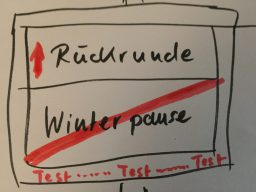 Rückrunde
Winterpause
Test ..... Test ..... Test